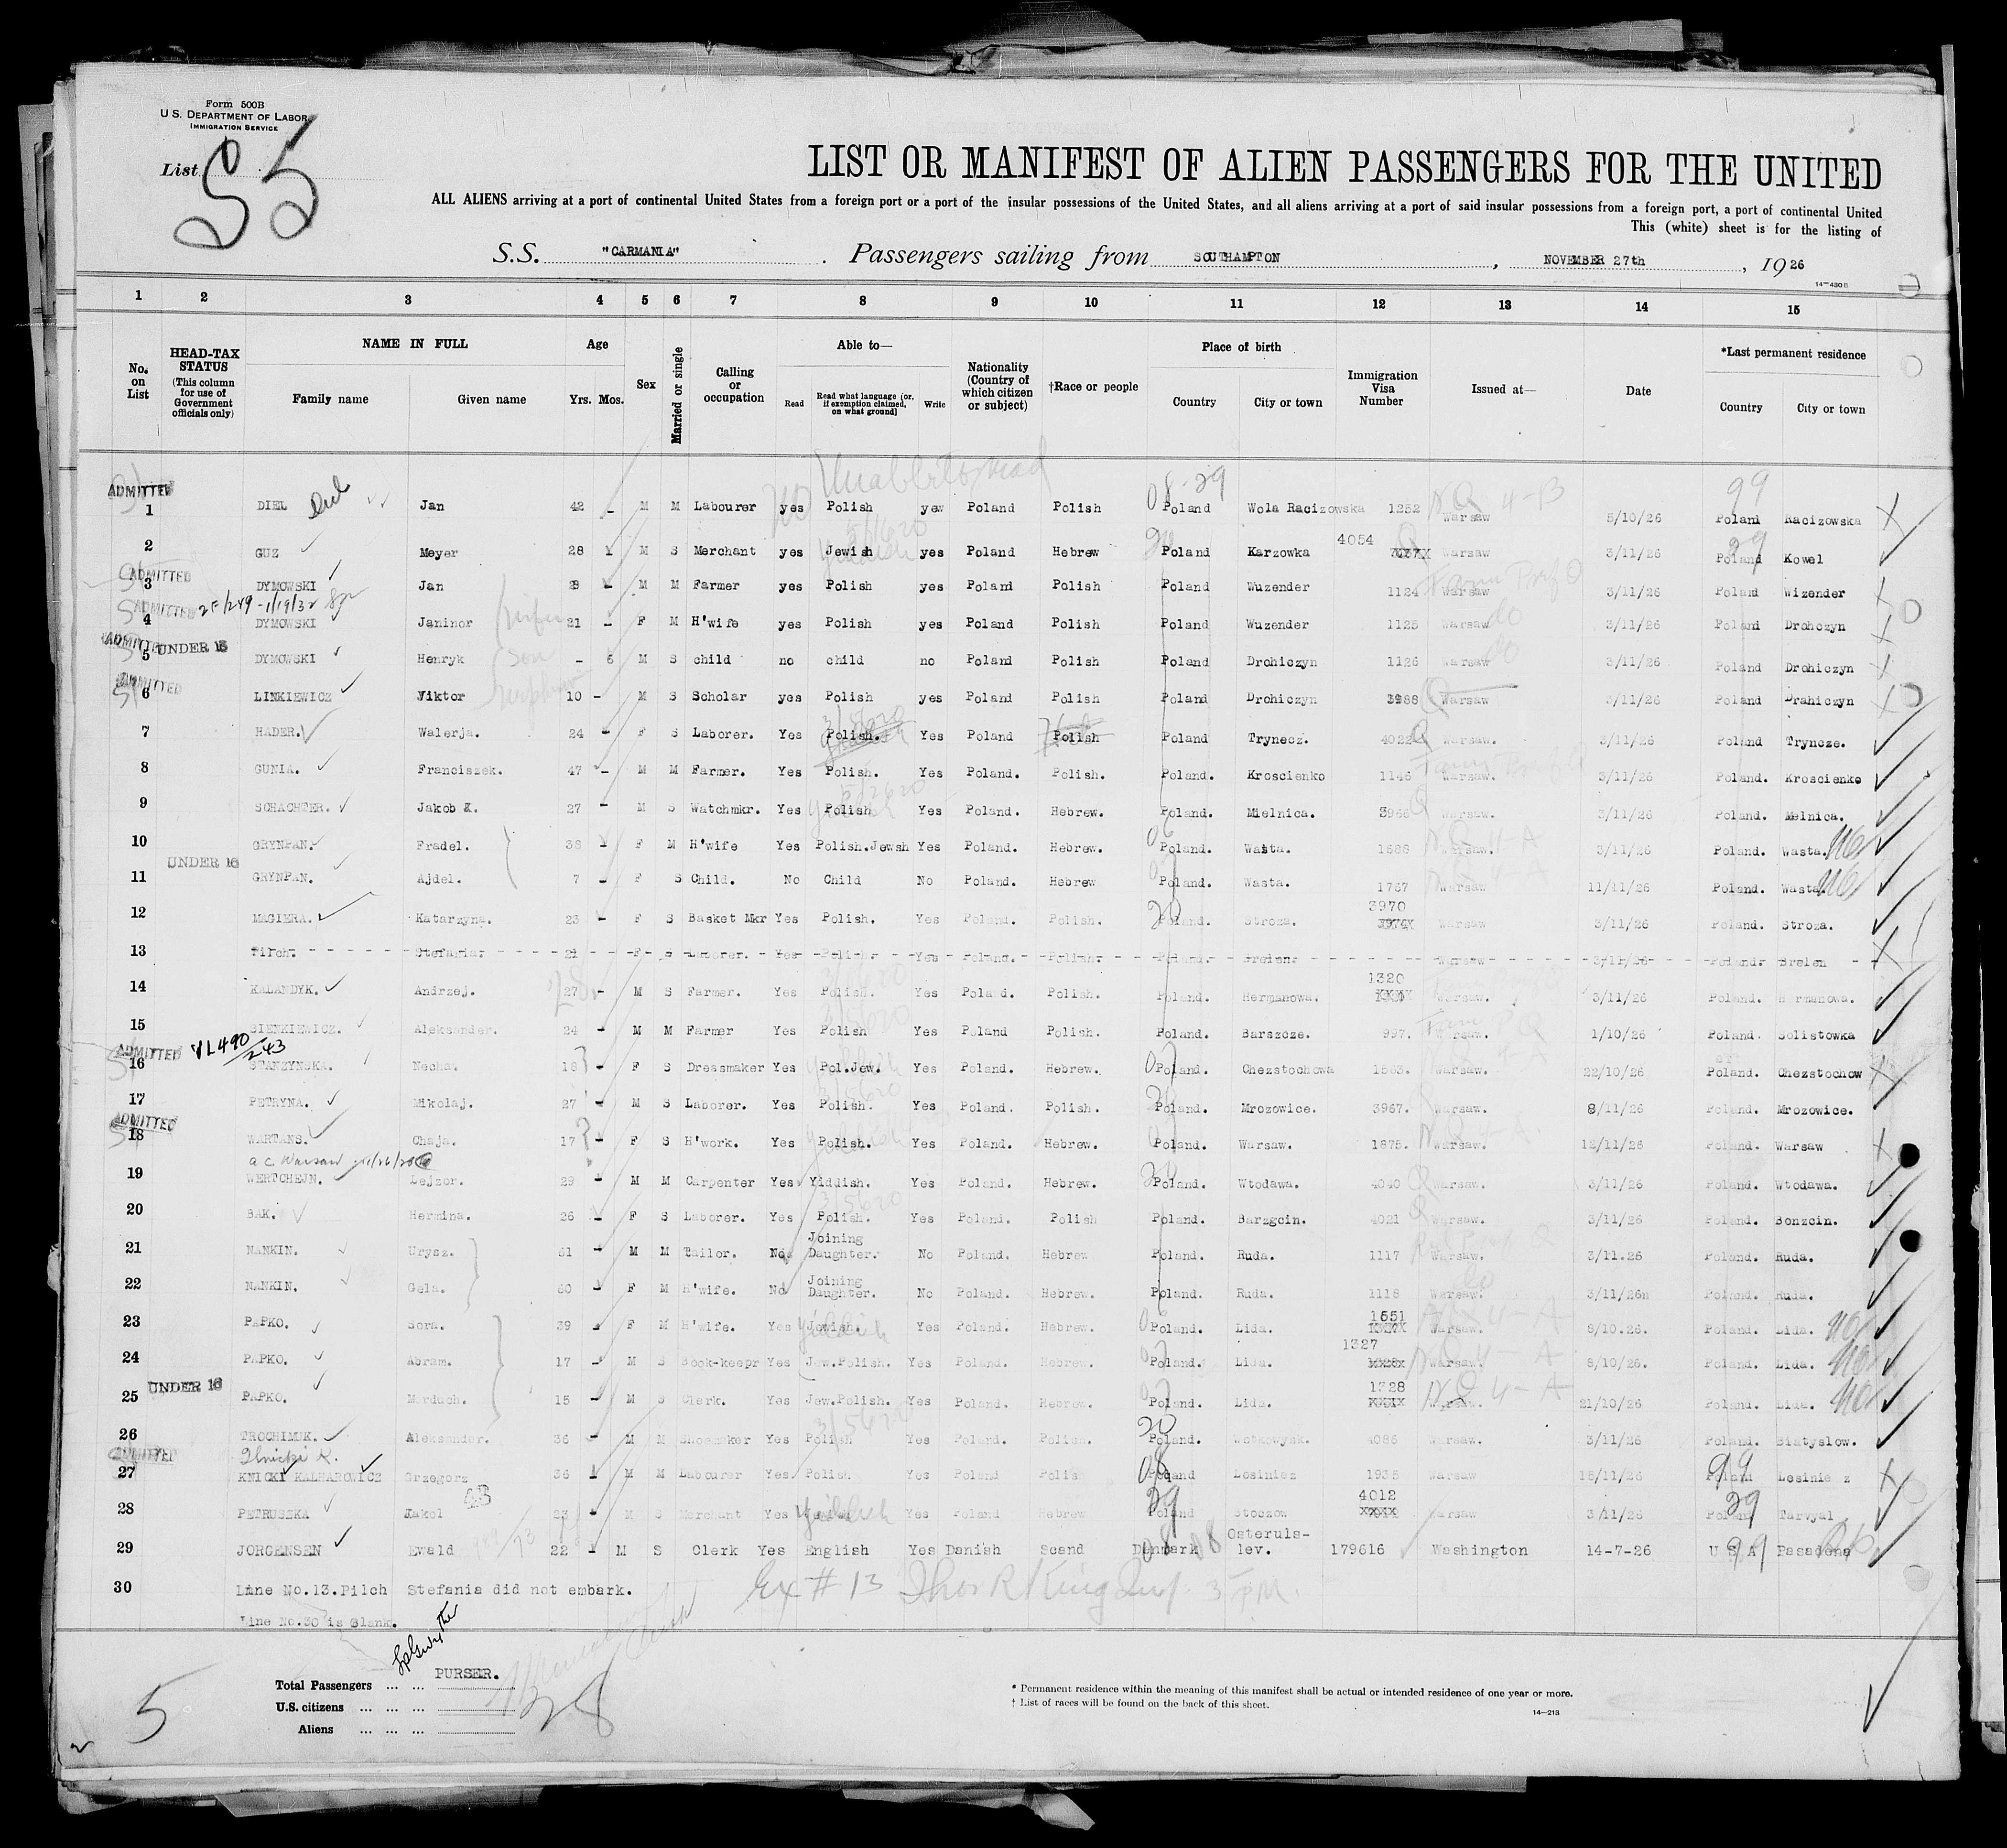 Form 500B
U.S. DEPARTMENT OF LABOR
IMMIGRATION SERVICE
List 55
LIST OR MANIFEST OF ALIEN PASSENGERS FOR THE UNITED
ALL ALIENS arriving at a port of continental United States from a foreign port or a port of the insular possessions of the United States, and all aliens arriving at a port of said insular possessions from a foreign port, a port of continental United
This (white) sheet is for the listing of
S.S. "CARMANIA" . Passengers sailing from SOUTHAMPTON , NOVEMBER 27th , 1926
14—430 B
1 2 3 4 5 6 7 8 9 10 11 12 13 14 15
No. on List HEAD-TAX STATUS (This column for use of Government officials only) NAME IN FULL Family name Given name Age Yrs. Mos. Sex Married or single Calling or occupation Able to— Read Read what language [or, if exemption claimed, on what ground] Write Nationality (Country of which citizen or subject) †Race or people Place of birth Country City or town Immigration Visa Number Issued at— Date *Last permanent residence Country City or town
Unable to read
ADMITTED 1 DIEL Jan 42 - M M Labourer yes Polish yew Poland Polish Poland Wola Racizowska 1252 Warsaw 5/10/26 Poland Racizowska
2 GUZ Meyer 28 M S Merchant yes Jewish yes Poland Hebrew Poland Karzowka 4054 Warsaw 3/11/26 Poland Kowel
ADMITTED 3 DYMOWSKI Jan 28 - M M Farmer yes Polish yes Poland Polish Poland Wuzender 1124 Warsaw 3/11/26 Poland Wizender
ADMITTED 4 DYMOWSKI Janinor 21 - F M H'wife yes Polish yes Poland Polish Poland Wuzender 1125 Warsaw 3/11/26 Poland Drohczyn
ADMITTED UNDER 16 5 DYMOWSKI Henryk - 6 M S child no child no Poland Polish Poland Drohiczyn 1126 Warsaw 3/11/26 Poland Drohiczyn
ADMITTED 6 LINKIEWICZ Wiktor 10 - M S Scholar yes Polish yes Poland Polish Poland Drohiczyn 3988 Warsaw 3/11/26 Poland Drahiczyn
7 HADER. Walerja. 24 - F S Laborer. Yes Polish. Yes Poland Polish Poland Trynecz. 4022 Warsaw. 3/11/26 Poland Tryncze.
8 GUNIA. Franciszek. 47 - M M Farmer. Yes Polish. Yes Poland. Polish. Poland. Kroscienko 1146 Warsaw. 3/11/26 Poland. Kroscienko
9 SCHACHTER. Jakob 27 - M S Watchmkr. Yes Polish Yes Poland. Hebrew. Poland. Mielnica. 3966 Warsaw. 3/11/26 Poland. Melnica.
10 GRYNPAN. Fradel. 38 - F M H'wife Yes Polish.Jewsh Yes Poland. Hebrew. Poland. Wasta. 1688 Warsaw. 3/11/26 Poland. Wasta.
UNDER 16 11 GRYNPAN. Ajdel. 7 - F S Child. No Child No Poland. Hebrew Poland. Wasta. 1767 Warsaw 11/11/26 Poland. Wasta
12 MAGIERA. Katarzyna. 23 - F S Basket Mkr Yes Polish. Yes Poland. Polish. Poland. Stroza. 3970 Warsaw 3/11/26 Poland. Stroza.
13 Pilch. Stefania. 21 - F S Laborer. Yes Polish. Yes Poland. Polish. Poland. Brelen. Warsaw 3/11/26 Poland. Brelen
14 KALANDYK. Andrzej. 27 - M S Farmer. Yes Polish. Yes Poland. Polish. Poland. Hermanowa. 1320 Warsaw. 3/11/26 Poland. Hermanowa.
15 SIENKIEWICZ. Aleksander. 24 - M M Farmer Yes Polish Yes Poland Polish. Poland. Barszcze. 997. Warsaw. 1/10/26 Poland. Solistowka
ADMITTED 16 STANZYNSKA. Necha. 18 - F S Dressmaker Yes Pol.Jew. Yes Poland. Hebrew. Poland. Chezstochowa 1563. Warsaw. 22/10/26 Poland. Chezstochow
17 PETRYNA. Mikolaj. 27 - M S Laborer. Yes Polish. Yes Poland. Polish. Poland. Mrozowice. 3967. Warsaw. 8/11/26 Poland. Mrozowice.
ADMITTED 18 WARTANS. Chaja. 17 - F S H'work. Yes Polish. Yes Poland. Hebrew. Poland. Warsaw. 1875. Warsaw. 12/11/26 Poland. Warsaw
19 WERTCHEJN. Lejzor. 29 - M M Carpenter Yes Yiddish. Yes Poland. Hebrew. Poland. Wtodawa. 4040 Warsaw. 3/11/26 Poland. Wtodawa.
20 BAK. Hermina. 26 - F S Laborer. Yes Polish. Yes Poland. Polish Poland. Barzgcin. 4021 Warsaw. 3/11/26 Poland. Bonzcin.
21 NANKIN. Urysz. 61 - M M Tailor. No Joining Daughter. No Poland. Hebrew Poland. Ruda. 1117 Warsaw. 3/11.26 Poland. Ruda.
22 NANKIN. Gela. 60 - F M H'wife. No Joining Daughter. No Poland. Hebrew. Poland. Ruda. 1118 Warsaw. 3/11/26n Poland. Ruda.
23 PAPKO. Sora. 39 - F M H'wife. Yes Jewish. Yes Poland. Hebrew. Poland. Lida. 1551 Warsaw. 8/10.26. Poland. Lida.
24 PAPKO. Abram. 17 - M S Book-keepr Yes Jew.Polish. Yes Poland. Hebrew. Poland. Lida. 1327 Warsaw. 8/10/26. Poland. Lida.
UNDER 16 25 PAPKO. Morduch. 15 - M S Clerk. Yes Jew.Polish. Yes Poland. Hebrew. Poland. Lida. 1328 Warsaw. 21/10/26 Poland. Lida.
26 TROCHIMUK. Aleksander. 36 - M M Shoemaker Yes Polish Yes Poland. Polish. Poland. Wotkowysk. 4086 Warsaw. 3/11/26 Poland. Biatyslow.
ADMITTED 27 KNICKI KALHAROWICZ Grzegorz 36 M M Labourer Yes Polish Yes Poland Polis Poland Losiniez 1935 Warsaw 15/11/26 Poland Lesinie z
28 PETRUSZKA Jakol 23 - M S Merchant Yes Yiddish Yes Poland Hebrew Poland Stoczow 4012 Warsaw 3/11/26 Poland Tarvyal
29 JORGENSEN Ewald 22 - M S Clerk Yes English Yes Danish Scand Denmark Osteruls-lev. 179616 Washington 14-7-26 U S A Pasadena
30 Line No.13.Pilch Stefania did not embark.
Ex # 13
Line No.30 is Blank.
PURSER.
Total Passengers ... ...
U.S. citizens ... ... ...
Aliens ... ... ...
28
5
* Permanent residence within the meaning of this manifest shall be actual or intended residence of one year or more.
† List of races will be found on the back of this sheet.
14—213